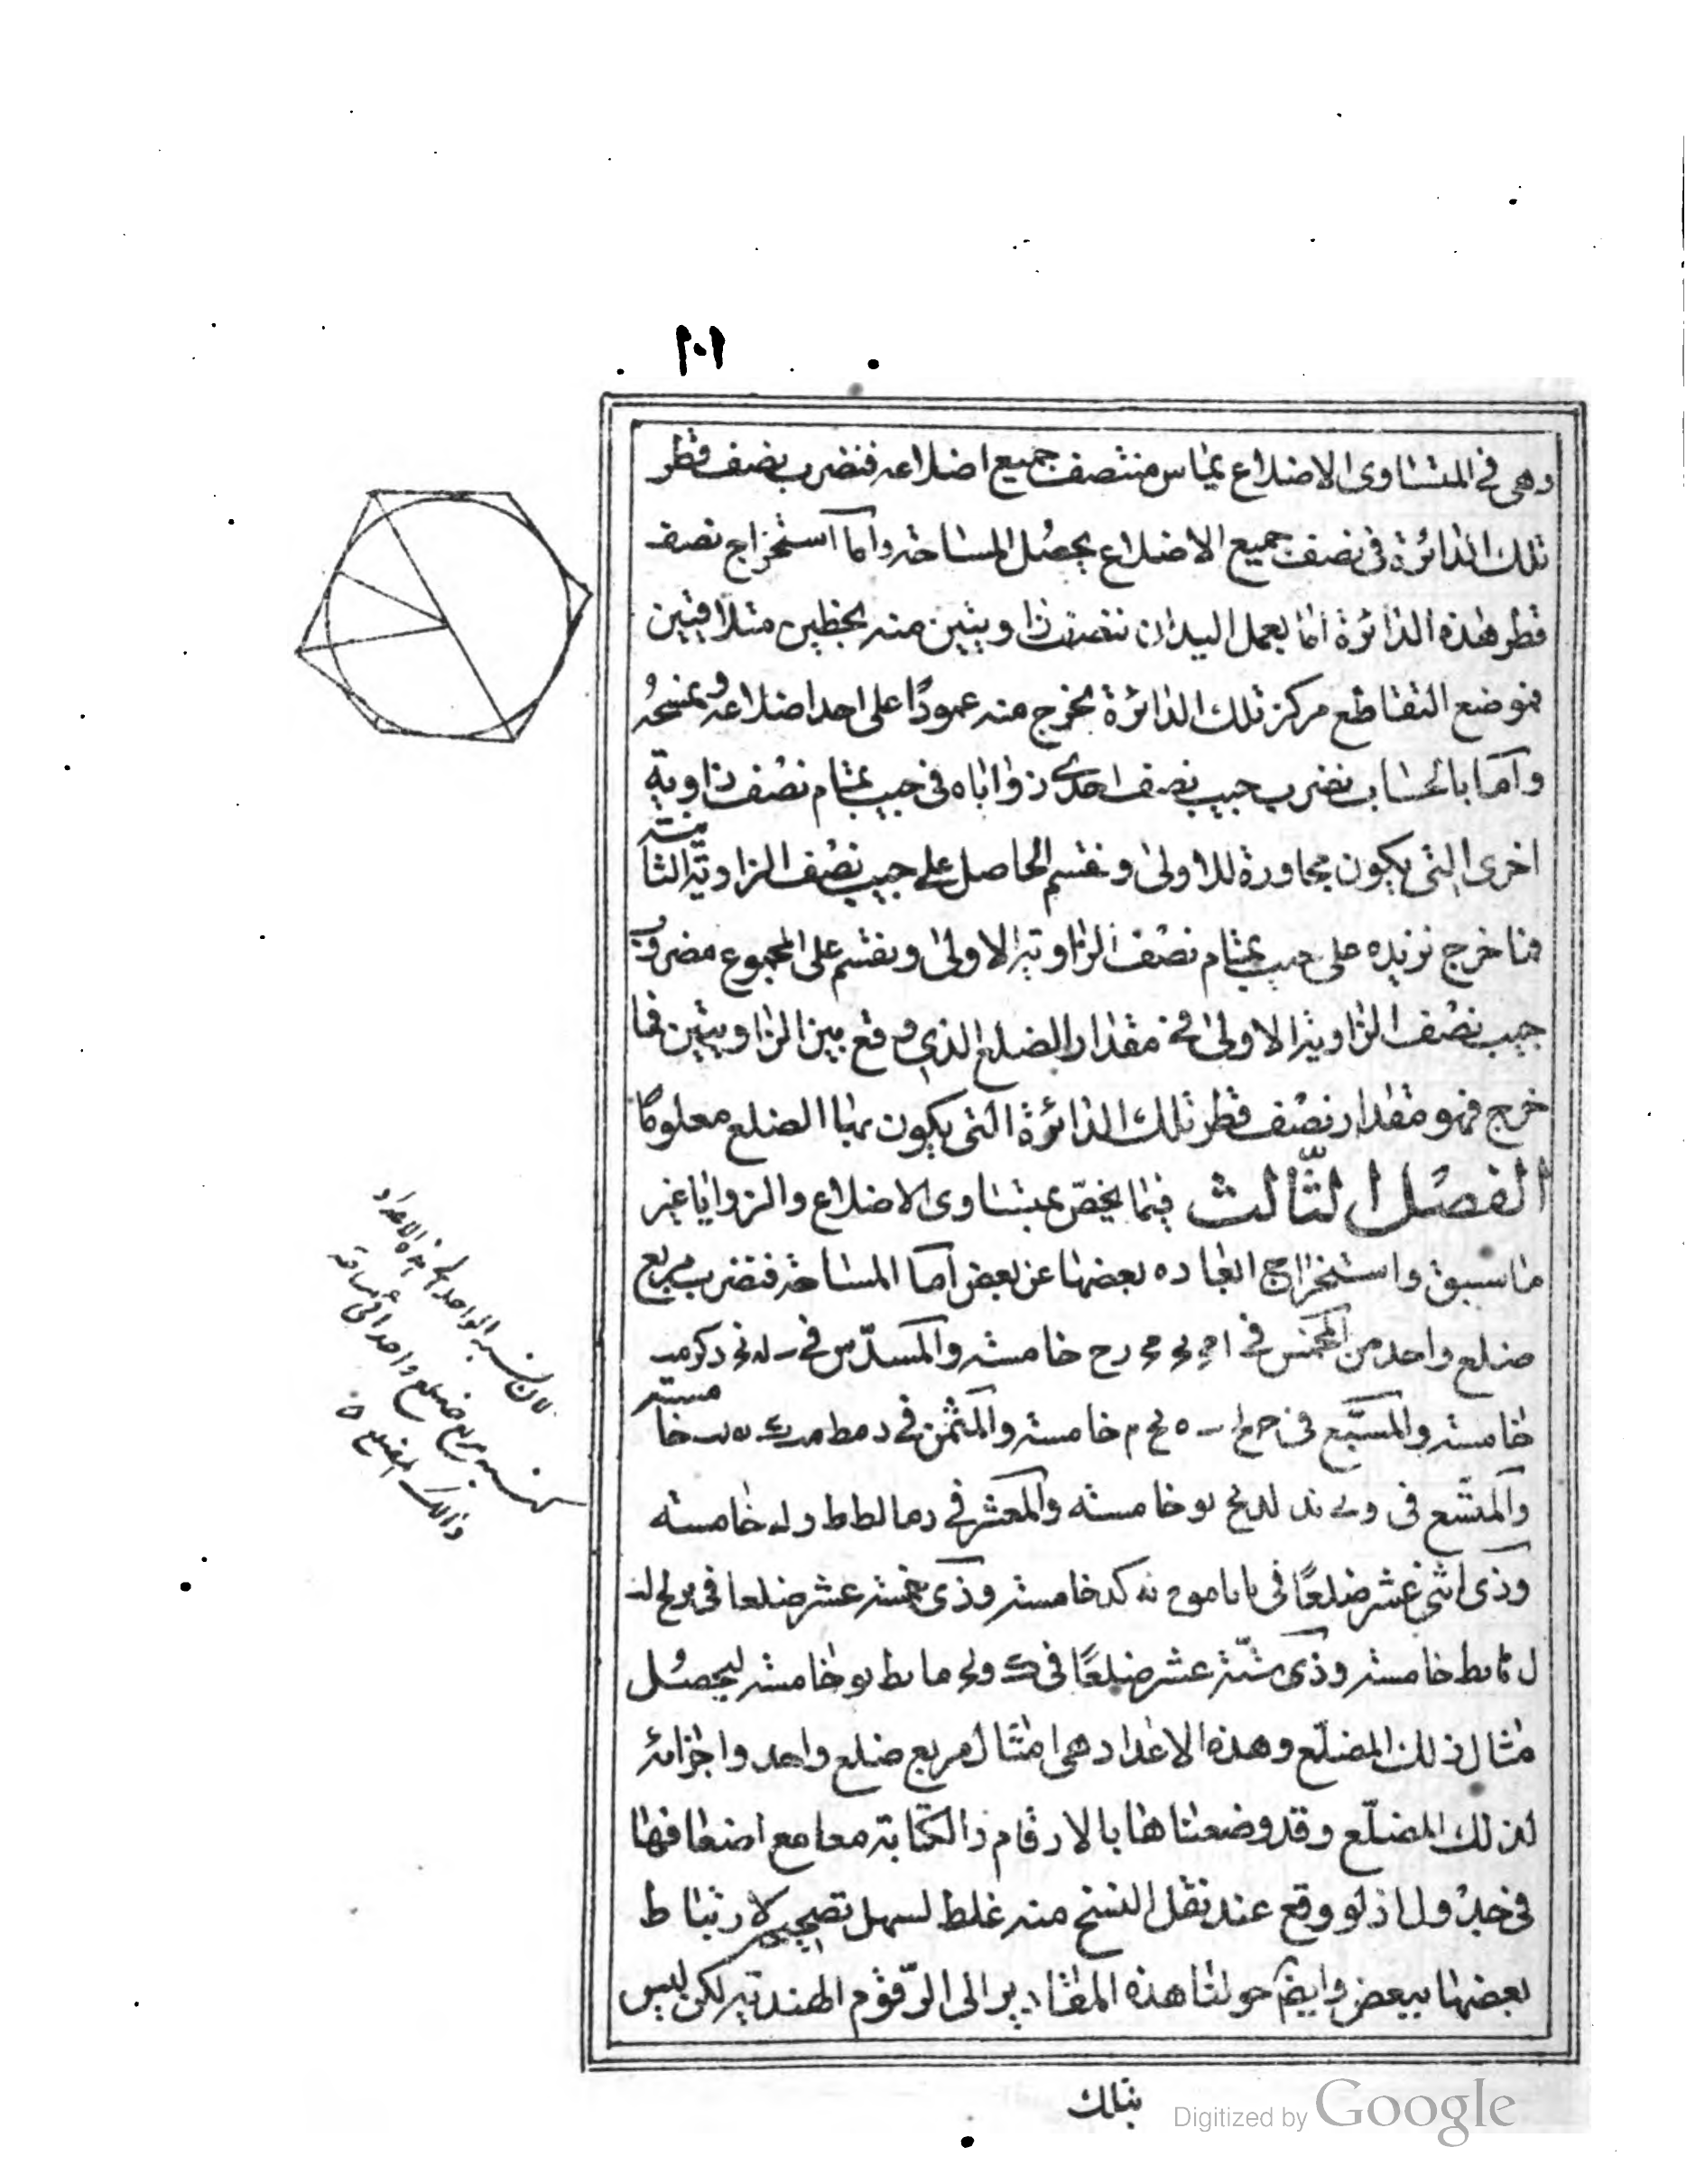 ١٠١
وهى فى المتساوى الاضلاع يماس منتصف جميع اضلاعه فنضرب نصف قطر
تلك الدائرة فى نصف جميع الاضلاع يحصل المساحة واما استخراج نصف
قطر هذه الدائرة اما بعمل اليد ان ننصف زاويتين منه بخطين متلاقيين
فموضع التقاطع مركز تلك الدائرة نخرج منه عمودًا على احد اضلاعه ونمسحه
واما بالحساب نضرب جيب نصف احدى زواياه فى جيب تمام نصف زاوية
اخرى التى يكون مجاورة للاولى ونقسم الحاصل على جيب نصف الزاوية الثانية
فما خرج نزيده على جيب تمام نصف الزاوية الاولى ونقسم على المجموع مضروب
جيب نصف الزاوية الاولى فى مقدار الضلع الذى وقع بين الزاويتين فما
خرج فهو مقدار نصف قطر تلك الدائرة التى يكون بها الضلع معلومًا
الفصل الثالث فيما يخصّ بمتساوى الاضلاع والزوايا غير
ما سبق واستخراج ابعاده بعضها عن بعض اما المساحة فنضرب مربع
ضلع واحد من المخمس فى خامسة والمسدّس فى
خامسة والمسبّع فى خامسة والمثمّن فى خامسة
والمتسّع فى خامسة والمعشّر فى خامسة
وذى اثنى عشر ضلعًا فى خامسة وذى خمسة عشر ضلعا فى
خامسة وذى ستّة عشر ضلعًا فى خامسة ليحصل
مثال ذلك المضلّع وهذه الاعداد هى امثال مربع ضلع واحد واجزائه
لذلك المضلّع وقد وضعناها بالارقام والكتابة معا مع اضعافها
فى جدول اذ لو وقع عند نقل النسخ منه غلط لسهل تصحيحه لارتباط
بعضها ببعض وايضًا حولنا هذه المقادير الى الرّقوم الهندية لكن ليس
بتلك
لان نسبة الواحد الى هذه الاعداد
كنسبة مربع ضلع واحد الى مساحة
ذلك المضلع
Digitized by Google